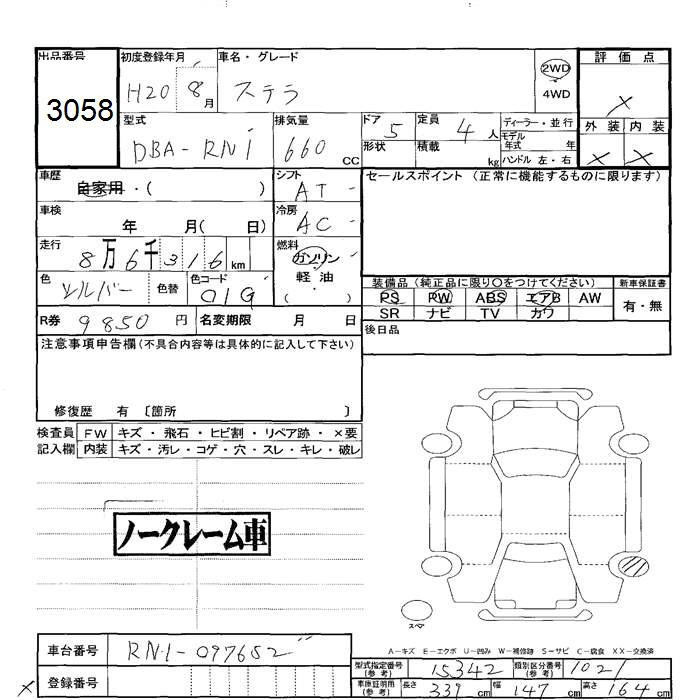 出品番号
3058
初度登録年月
H20 8月
車名・グレード
ステラ
2WD
4WD
評価点
×
外装 内装
× ×
型式
DBA-RN1
排気量
660 cc
ドア 5
形状
定員 4人
積載 kg
ディーラー・並行
モデル年式 年
ハンドル 左・右
車歴
自家用・( )
シフト
AT
セールスポイント(正常に機能するものに限ります)
車検
年 月( 日)
冷房
AC
走行
8万6千316km
燃料
ガソリン
軽油
・( )
色
シルバー
色替
色コード
01G
装備品(純正品に限り○をつけてください)
PS PW ABS エアB AW
SR ナビ TV カワ
新車保証書
有・無
R券 9850円
名変期限 月 日
後日品
注意事項申告欄(不具合内容等は具体的に記入して下さい)
修復歴 有 〔箇所 〕
検査員 FW キズ・飛石・ヒビ割・リペア跡・×要
記入欄 内装 キズ・汚レ・コゲ・穴・スレ・キレ・破レ
ノークレーム車
スペア
A-キズ E-エクボ U-凹み W-補修跡 S-サビ C-腐食 XX-交換済
車台番号
RN1-097652
型式指定番号(参考) 15342
類別区分番号(参考) 1021
× 登録番号
車庫証明用(参考) 長さ 339cm 幅 147cm 高さ 164cm